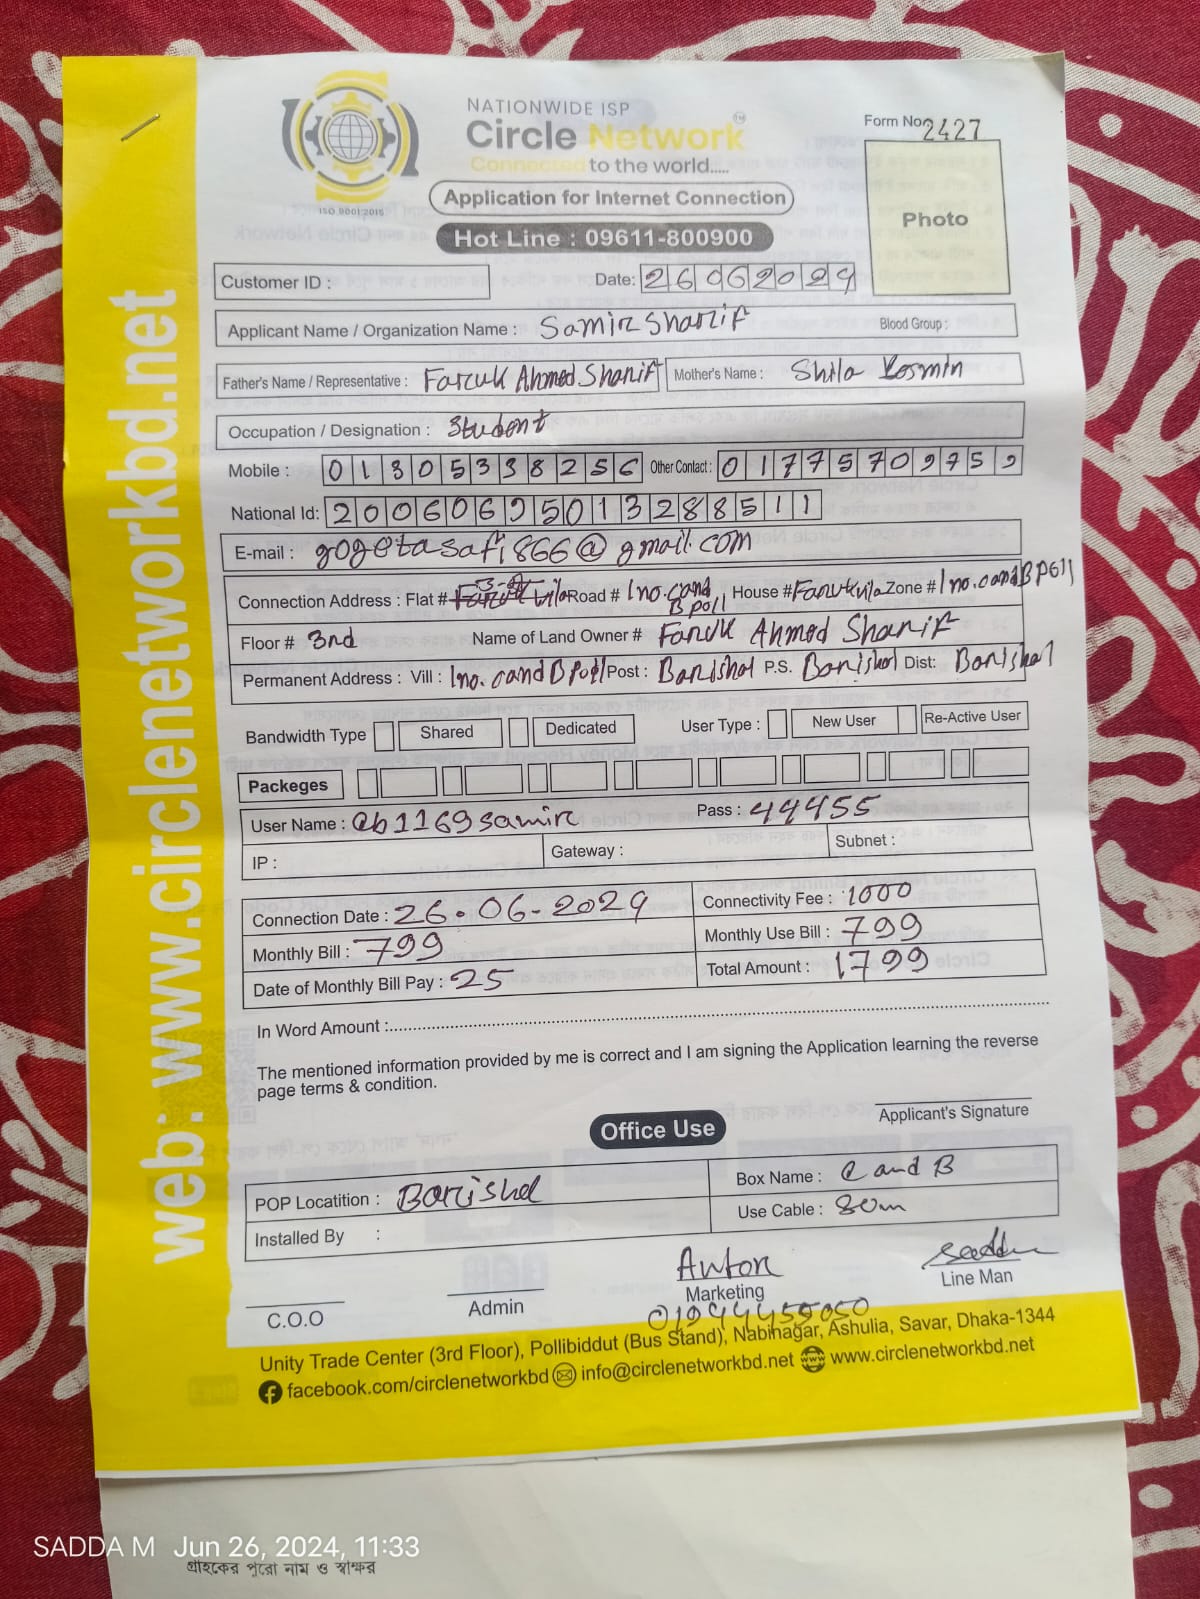 NATIONWIDE ISP
Circle Network™
Connected to the world.....
ISO 9001:2015
Application for Internet Connection
Hot Line : 09611-800900
Form No. 2427
Photo
Customer ID :
Date: 26062024
Applicant Name / Organization Name : Samir Sharif
Blood Group :
Father's Name / Representative : Faruk Ahmed Sharif
Mother's Name : Shila Yesmin
Occupation / Designation : Student
Mobile : 01305338256 Other Contact : 01775709759
National Id: 20060695013288511
E-mail : gogetasafi866@gmail.com
Connection Address : Flat # Road # 1no.cand B poll House # Faruk vila Zone # 1no.candB Poll
Floor # 3rd Name of Land Owner # Faruk Ahmed Sharif
Permanent Address : Vill : 1no. cand B Poll Post : Barishal P.S. Barishal Dist: Barishal
Bandwidth Type Shared Dedicated User Type : New User Re-Active User
Packeges
User Name : cb1169samir Pass : 44455
IP : Gateway : Subnet :
Connection Date : 26-06-2024 Connectivity Fee : 1000
Monthly Bill : 799 Monthly Use Bill : 799
Date of Monthly Bill Pay : 25 Total Amount : 1799
In Word Amount :
The mentioned information provided by me is correct and I am signing the Application learning the reverse
page terms & condition.
Applicant's Signature
Office Use
POP Locatition : Barishal Box Name : C and B
Installed By : Use Cable : 80m
Anton
C.O.O Admin Marketing Line Man
01944455050
Unity Trade Center (3rd Floor), Pollibiddut (Bus Stand), Nabinagar, Ashulia, Savar, Dhaka-1344
facebook.com/circlenetworkbd info@circlenetworkbd.net www.circlenetworkbd.net
web: www.circlenetworkbd.net
SADDA M Jun 26, 2024, 11:33
গ্রাহকের পুরো নাম ও স্বাক্ষর